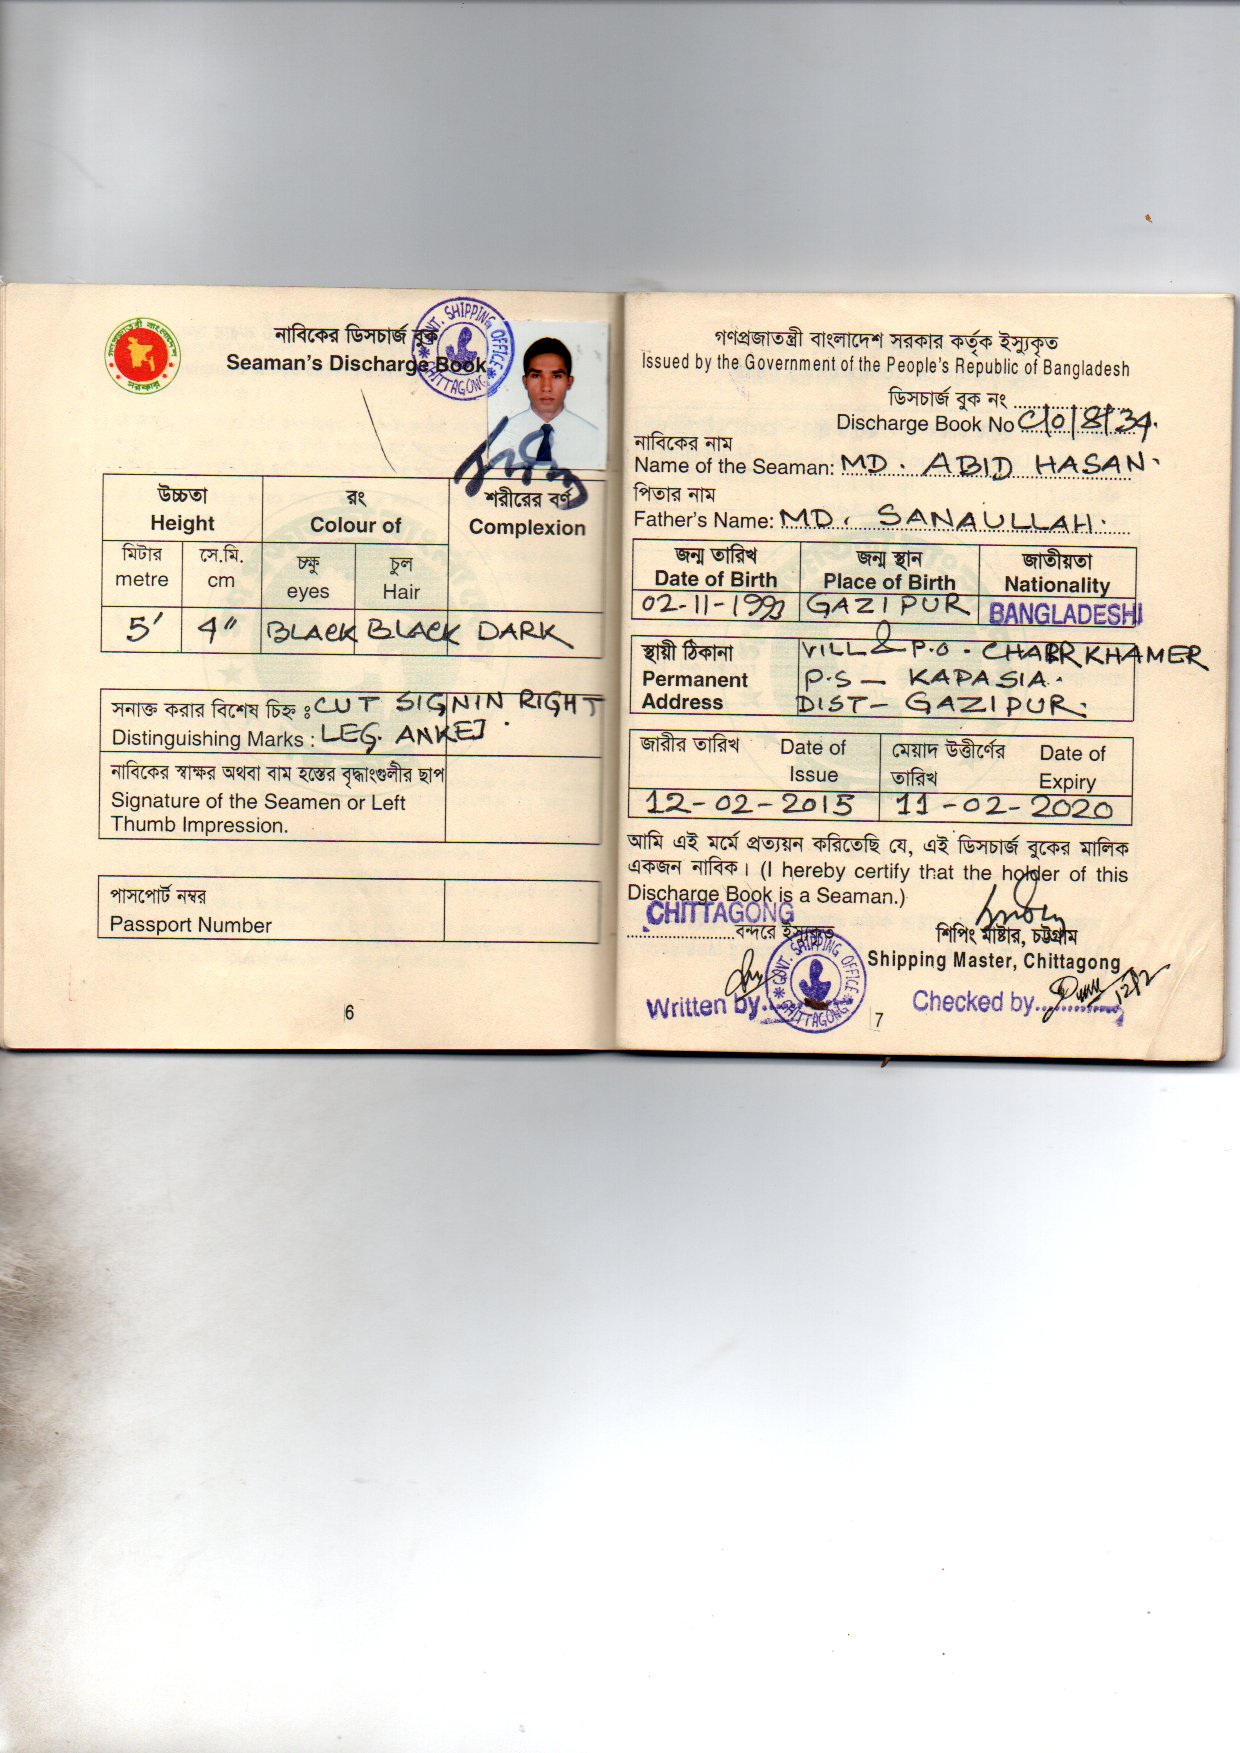 নাবিকের ডিসচার্জ বুক
Seaman's Discharge Book
GOVT. SHIPPING OFFICE
CHITTAGONG
উচ্চতা
Height
রং
Colour of
শরীরের বর্ণ
Complexion
মিটার
metre
সে.মি.
cm
চক্ষু
eyes
চুল
Hair
5' 4" BLACK BLACK DARK
সনাক্ত করার বিশেষ চিহ্ন ঃ CUT SIGN IN RIGHT
Distinguishing Marks : LEG.
নাবিকের স্বাক্ষর অথবা বাম হস্তের বৃদ্ধাংগুলীর ছাপ
Signature of the Seamen or Left
Thumb Impression.
পাসপোর্ট নম্বর
Passport Number
6
গণপ্রজাতন্ত্রী বাংলাদেশ সরকার কর্তৃক ইস্যুকৃত
Issued by the Government of the People's Republic of Bangladesh
ডিসচার্জ বুক নং
Discharge Book No C/O/8134.
নাবিকের নাম
Name of the Seaman: MD. ABID HASAN.
পিতার নাম
Father's Name: MD. SANAULLAH.
জন্ম তারিখ
Date of Birth
জন্ম স্থান
Place of Birth
জাতীয়তা
Nationality
02-11-1993 GAZIPUR BANGLADESHI
স্থায়ী ঠিকানা
Permanent
Address
VILL & P.O - CHARKHAMER
P.S - KAPASIA.
DIST- GAZIPUR.
জারীর তারিখ Date of
Issue
মেয়াদ উত্তীর্ণের Date of
তারিখ Expiry
12-02-2015 11-02-2020
আমি এই মর্মে প্রত্যয়ন করিতেছি যে, এই ডিসচার্জ বুকের মালিক
একজন নাবিক। (I hereby certify that the holder of this
Discharge Book is a Seaman.)
CHITTAGONG
বন্দরে ইস্যুকৃত
শিপিং মাষ্টার, চট্টগ্রাম
Shipping Master, Chittagong
GOVT. SHIPPING OFFICE
CHITTAGONG
Written by
Checked by
12/2
7